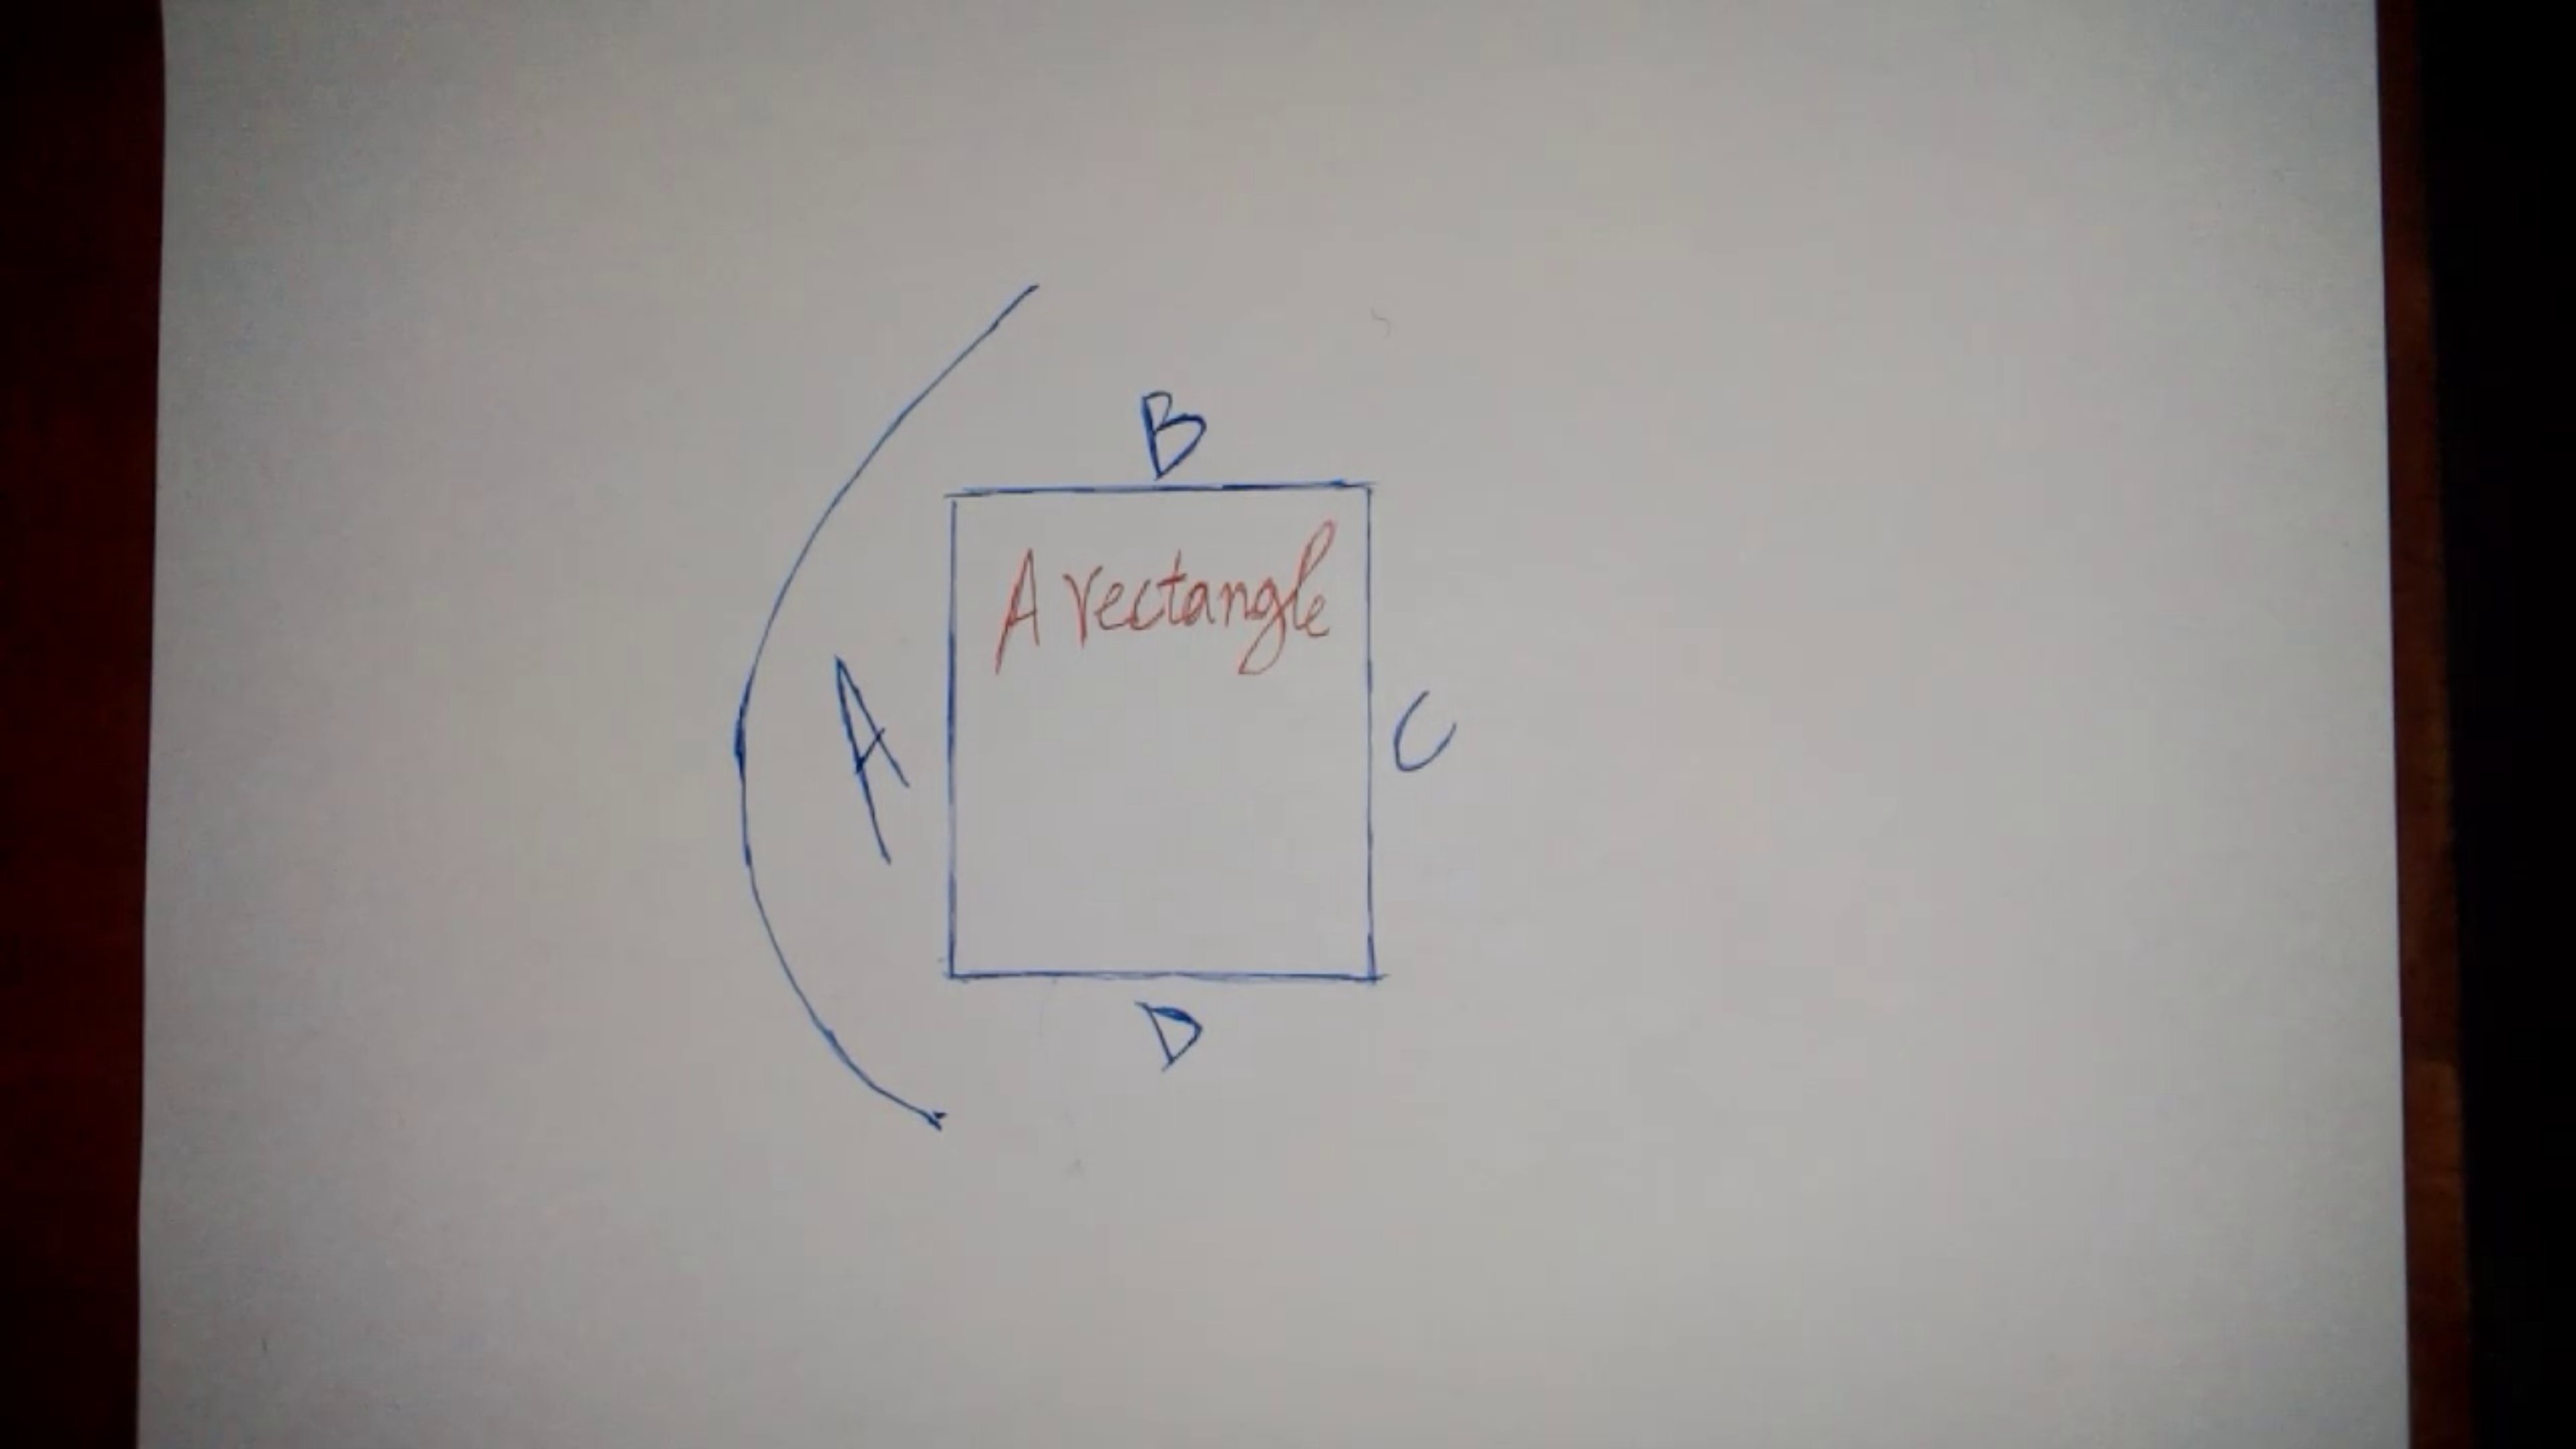 B
A rectangle
A
C
D